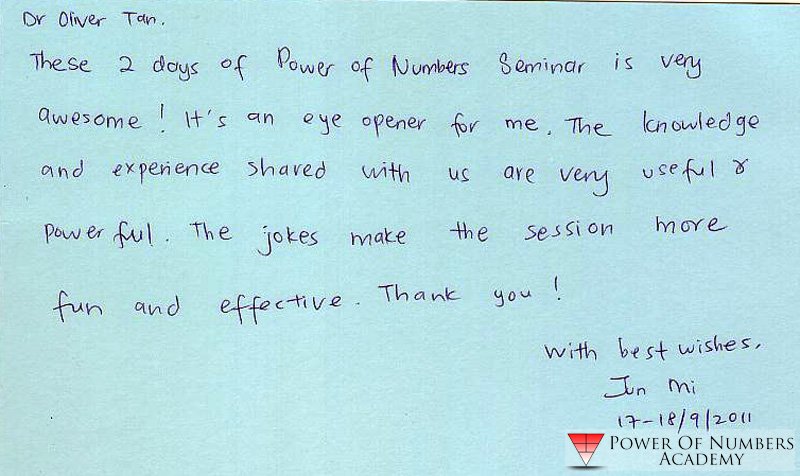 Dr Oliver Tan.
These 2 days of Power of Numbers Seminar is very
awesome! It's an eye opener for me. The knowledge
and experience shared with us are very useful &
powerful. The jokes make the session more
fun and effective. Thank you!
With best wishes,
Jun Mi
17-18/9/2011
POWER OF NUMBERS
ACADEMY